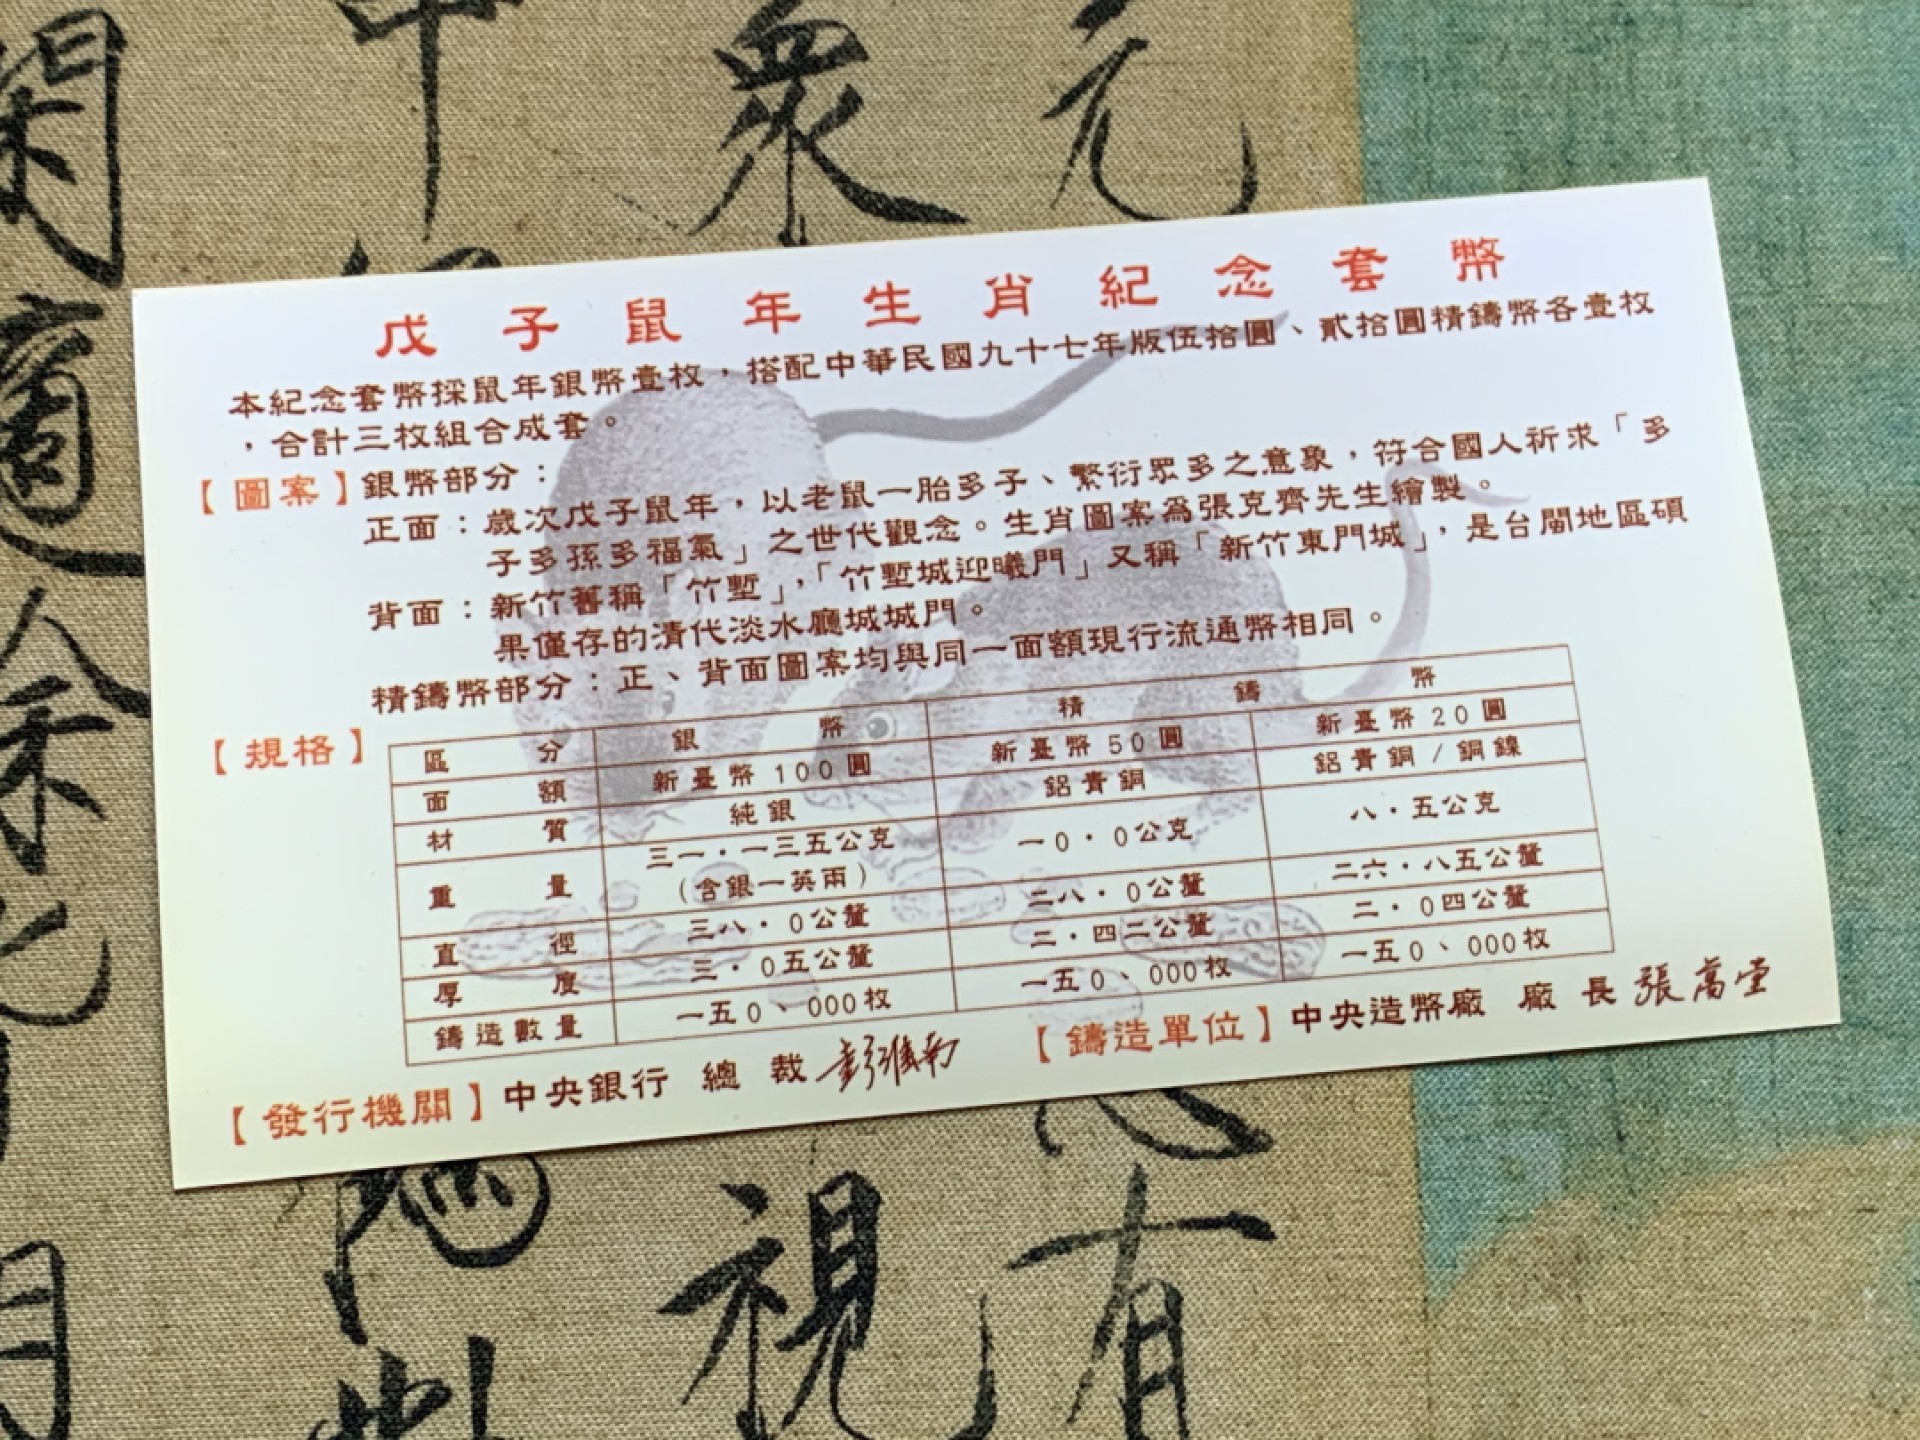 戊子鼠年生肖紀念套幣
本紀念套幣採鼠年銀幣壹枚，搭配中華民國九十七年版伍拾圓、貳拾圓精鑄幣各壹枚
，合計三枚組合成套。
【圖案】銀幣部分：
正面：歲次戊子鼠年，以老鼠一胎多子、繁衍眾多之意象，符合國人祈求「多
子多孫多福氣」之世代觀念。生肖圖案為張克齊先生繪製。
背面：新竹舊稱「竹塹」，「竹塹城迎曦門」又稱「新竹東門城」，是台閩地區碩
果僅存的清代淡水廳城城門。
精鑄幣部分：正、背面圖案均與同一面額現行流通幣相同。
【規格】
區分 銀幣 精鑄幣
面額 新臺幣100圓 新臺幣50圓 新臺幣20圓
材質 純銀 鋁青銅 鋁青銅/銅鎳
重量 三一．一三五公克 一0．0公克 八．五公克
（含銀一英兩）
直徑 三八．0公釐 二八．0公釐 二六．八五公釐
厚度 三．0五公釐 二．四二公釐 二．0四公釐
鑄造數量 一五0、000枚 一五0、000枚 一五0、000枚
【發行機關】中央銀行 總裁 彭淮南 【鑄造單位】中央造幣廠 廠長 張萬堂
元
眾
中
閑
適
余
禾
視
有